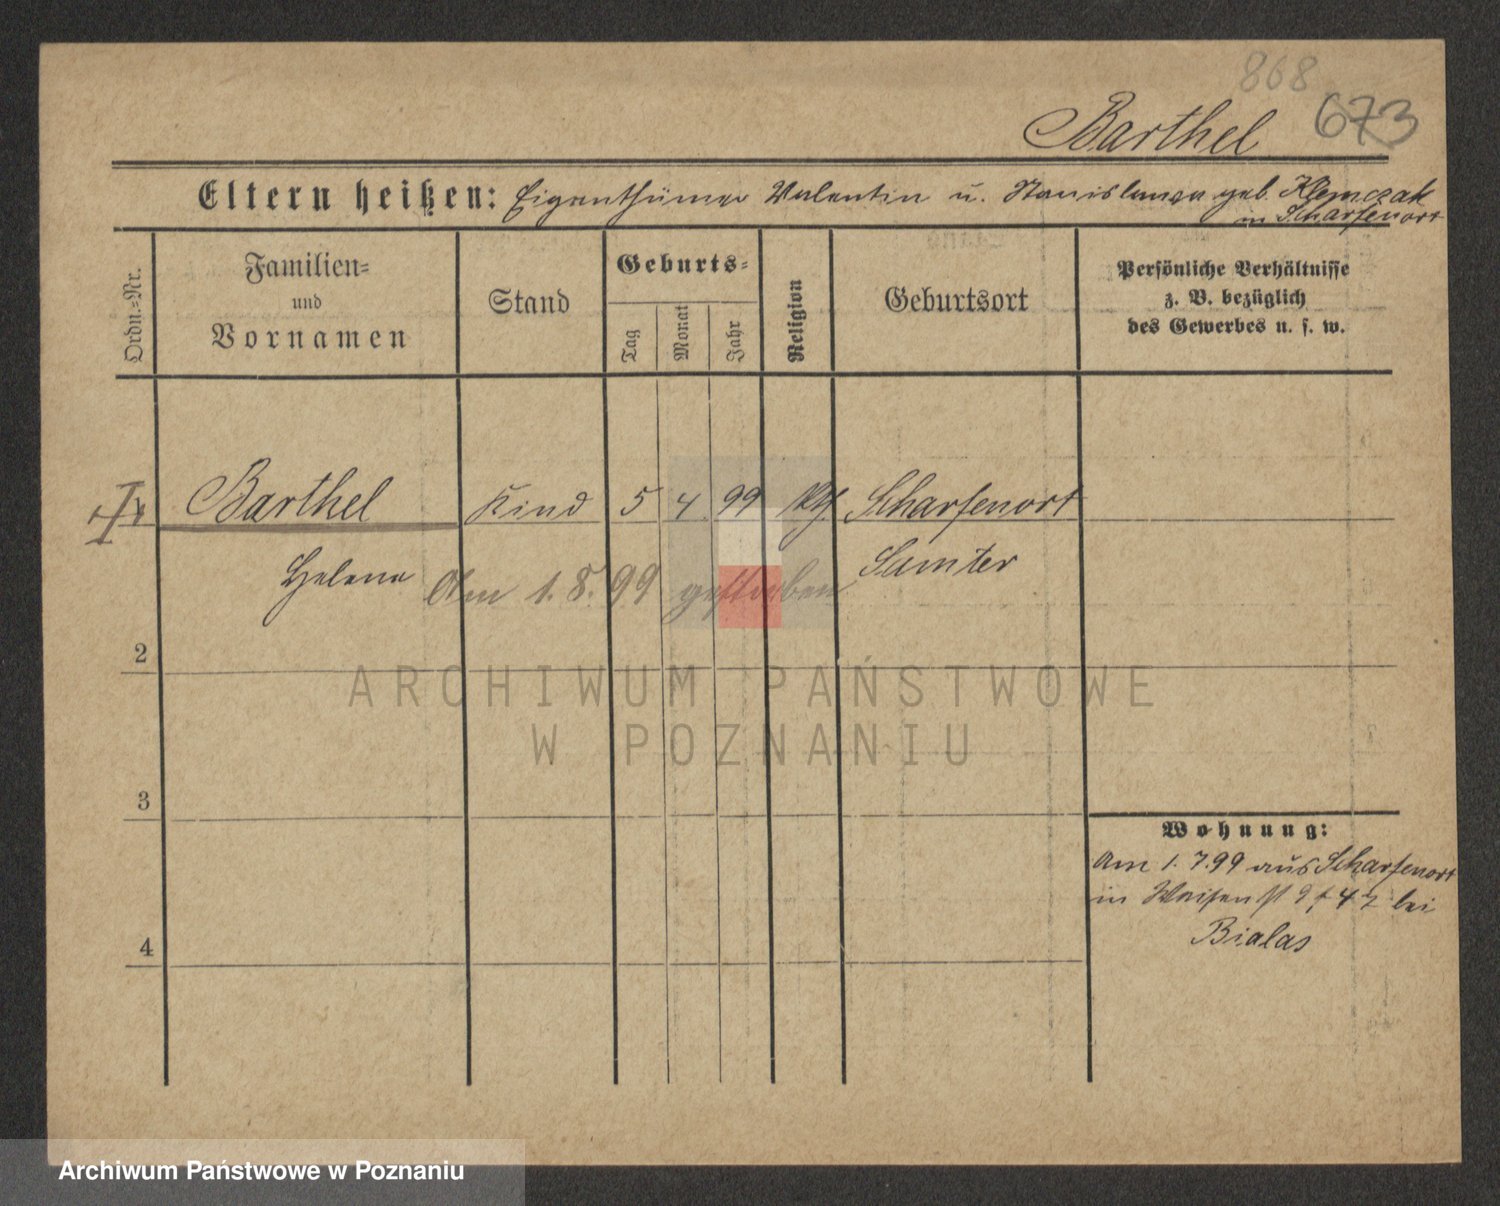 868
Barthel 673
Eltern heißen: Eigenthümer Valentin u. Stanislawa geb. Klemczak
in Scharfenort
Ordn.-Nr.
Familien-
und
Vornamen
Stand
Geburts-
Tag
Monat
Jahr
Religion
Geburtsort
Persönliche Verhältnisse
z. B. bezüglich
des Gewerbes u. s. w.
Barthel Kind 5 4 99 Scharfenort
Helena Samter
Am 1. 8. 99 gestorben
2
3
4
Wohnung:
Am 1. 7. 99 aus Scharfenort
in Waisenst 9 bei
Bialas
ARCHIWUM PAŃSTWOWE
W POZNANIU
Archiwum Państwowe w Poznaniu